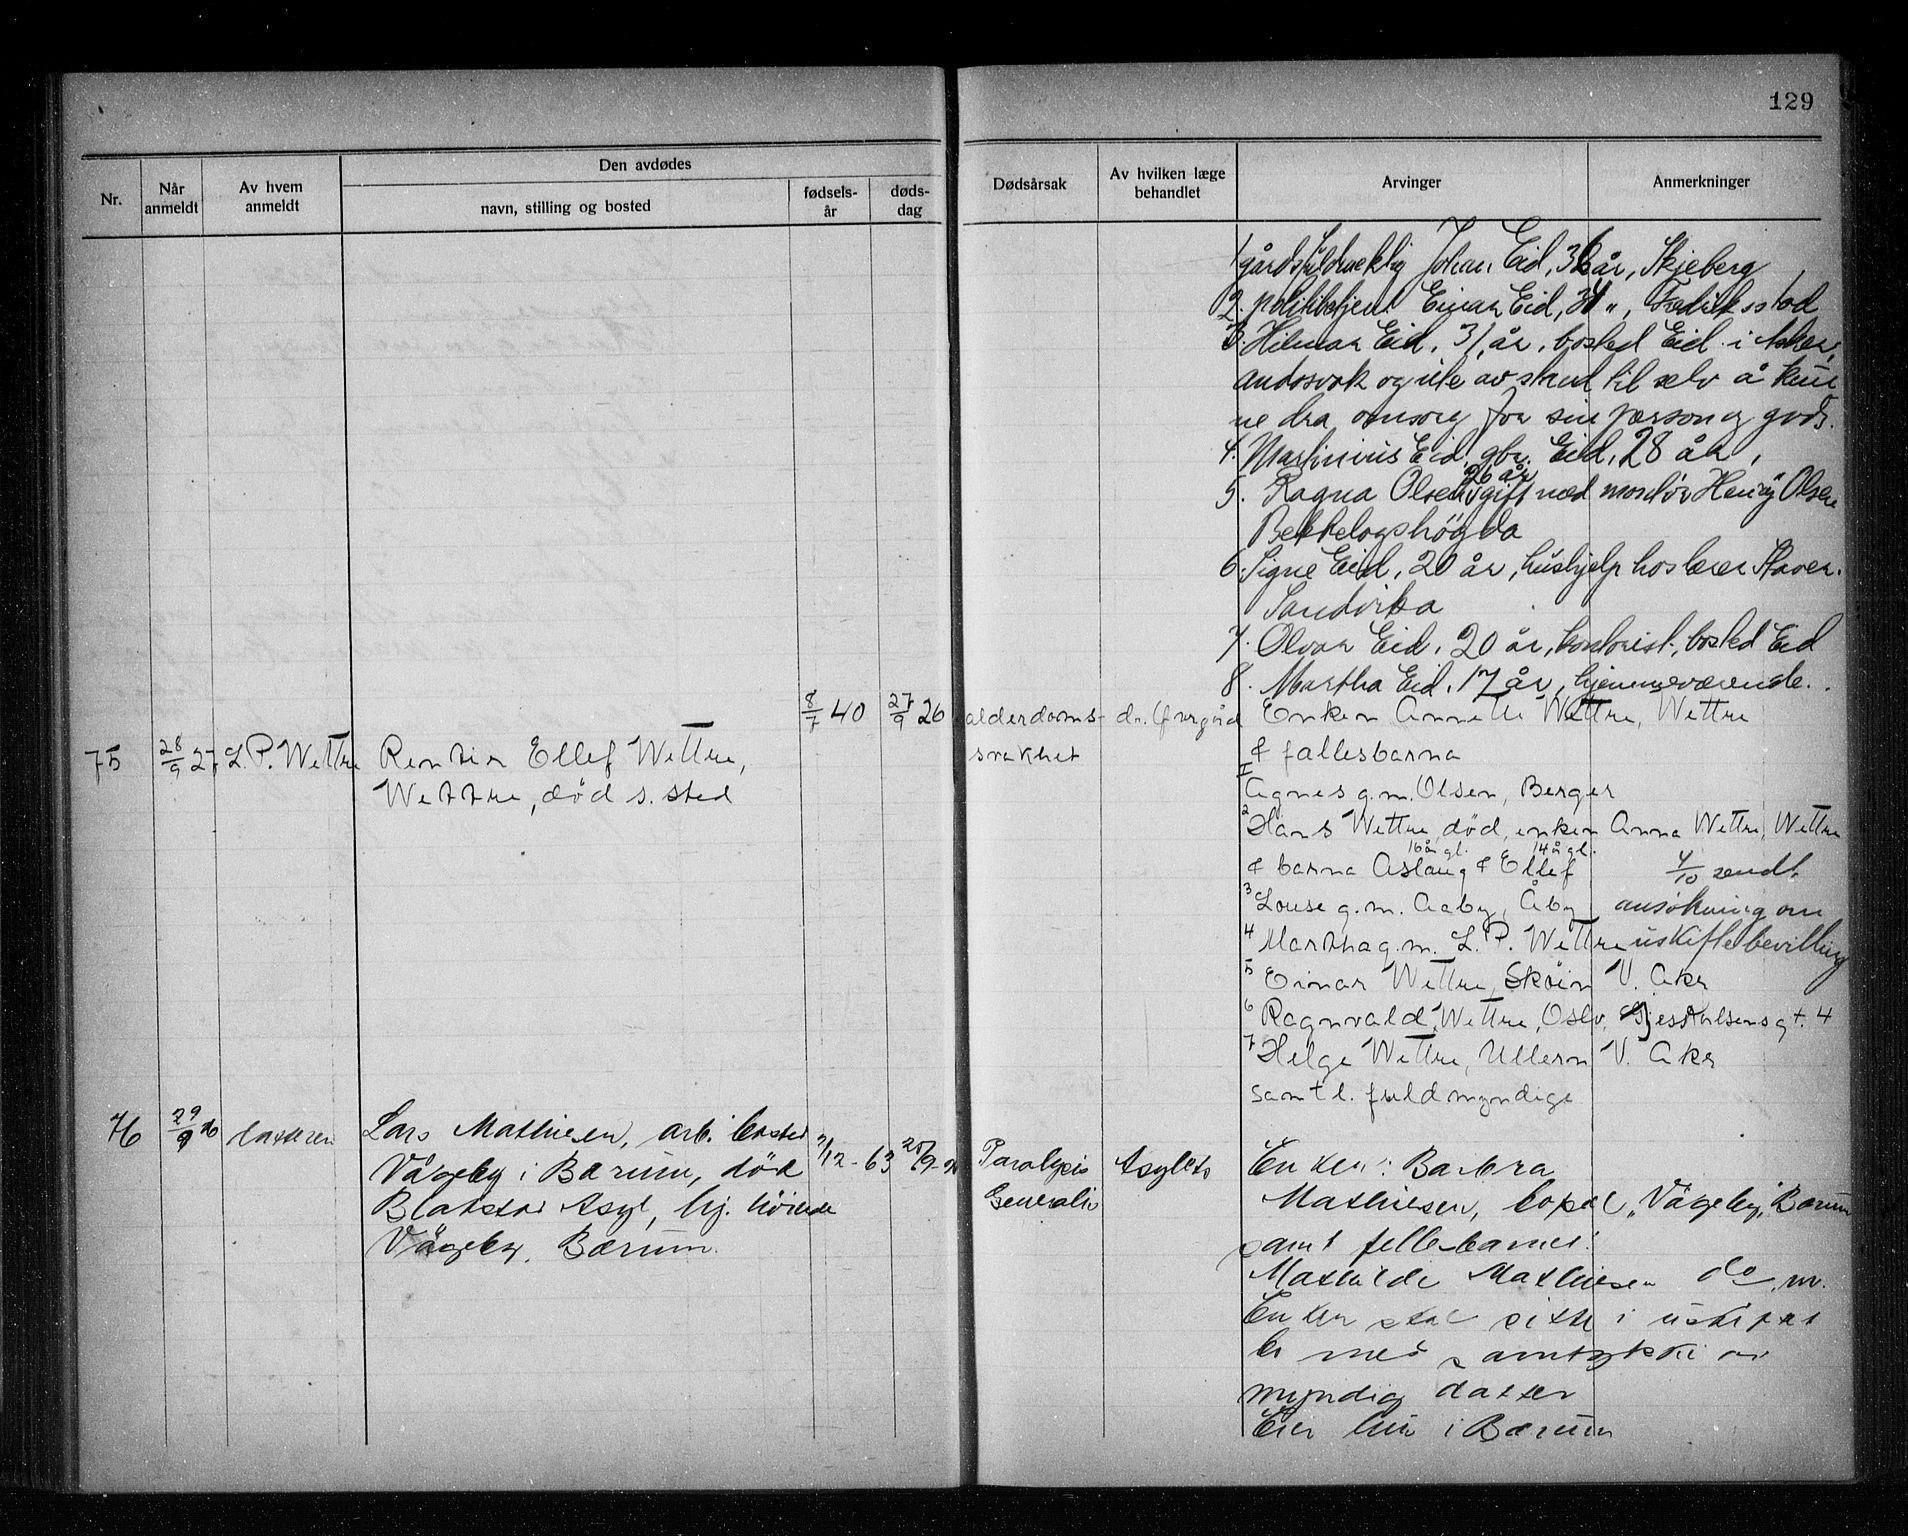 129
Nr.
Når anmeldt
Av hvem anmeldt
Den avdødes
navn, stilling og bosted
fødsels-år
døds-dag
Dødsårsak
Av hvilken læge behandlet
Arvinger
Anmerkninger
1 Johan Eid, 36 år, Skjeberg
2. politibetjent Einar Eid, 34 ", Fredriksstad
3. Hilmar Eid, 31 år, bosted Eid i Asker,
andssvak og ute av stand til selv å kun
ne dra omsorg for sin person og gods.
4. Martinius Eid, gbr. Eid, 28 år,
26 år
5. Ragna Olsen, gift med Henry Olsen
Bekkelagshögda
6. Signe Eid, 20 år, hushjelp hos lærer
Sandvika
7. Olvar Eid, 20 år, kontorist, bosted Eid
8. Martha Eid, 17 år, hjemmeværende.
75
28/9 27
L. P. Wettre
Rentier Ellef Wettre,
Wettre, død s. sted
8/7 40
27/9 26
alderdoms-
svakhet
dr.
Enken Annette Wettre, Wettre
& fællesbarna
1 Agnes g. m. Olsen, Berger
2 Hans Wettre, død, enken Anna Wettre, Wettre
16 år gl. 14 år gl.
& barna Aslaug & Ellef
4/10 sendt
3 Louise g. m. Aaby, Åby
ansökning om
4 Martha g. m. L. P. Wettre
uskiftebevilling
5 Einar Wettre, Skøien V. Aker
6 Ragnvald Wettre, Oslo, gt. 4
7 Helge Wettre, Ullern V. Aker
samtl. fuldmyndige
76
29/9 26
Lars Mathiesen, arb. bosted
Vågeby i Bærum, død
Blakstad Asyl, hj. hörende
Vågeby, Bærum.
/12-63
Paralysis
Generalis
Asylets
Enken: Barbra
Mathiesen, bopæl "Vågeby", Bærum
samt fellesbarnet:
Mathilde Mathiesen do, m.
Enken skal sitte i uskiftet
bo med samtykke av
myndig datter
Eier hus i Bærum